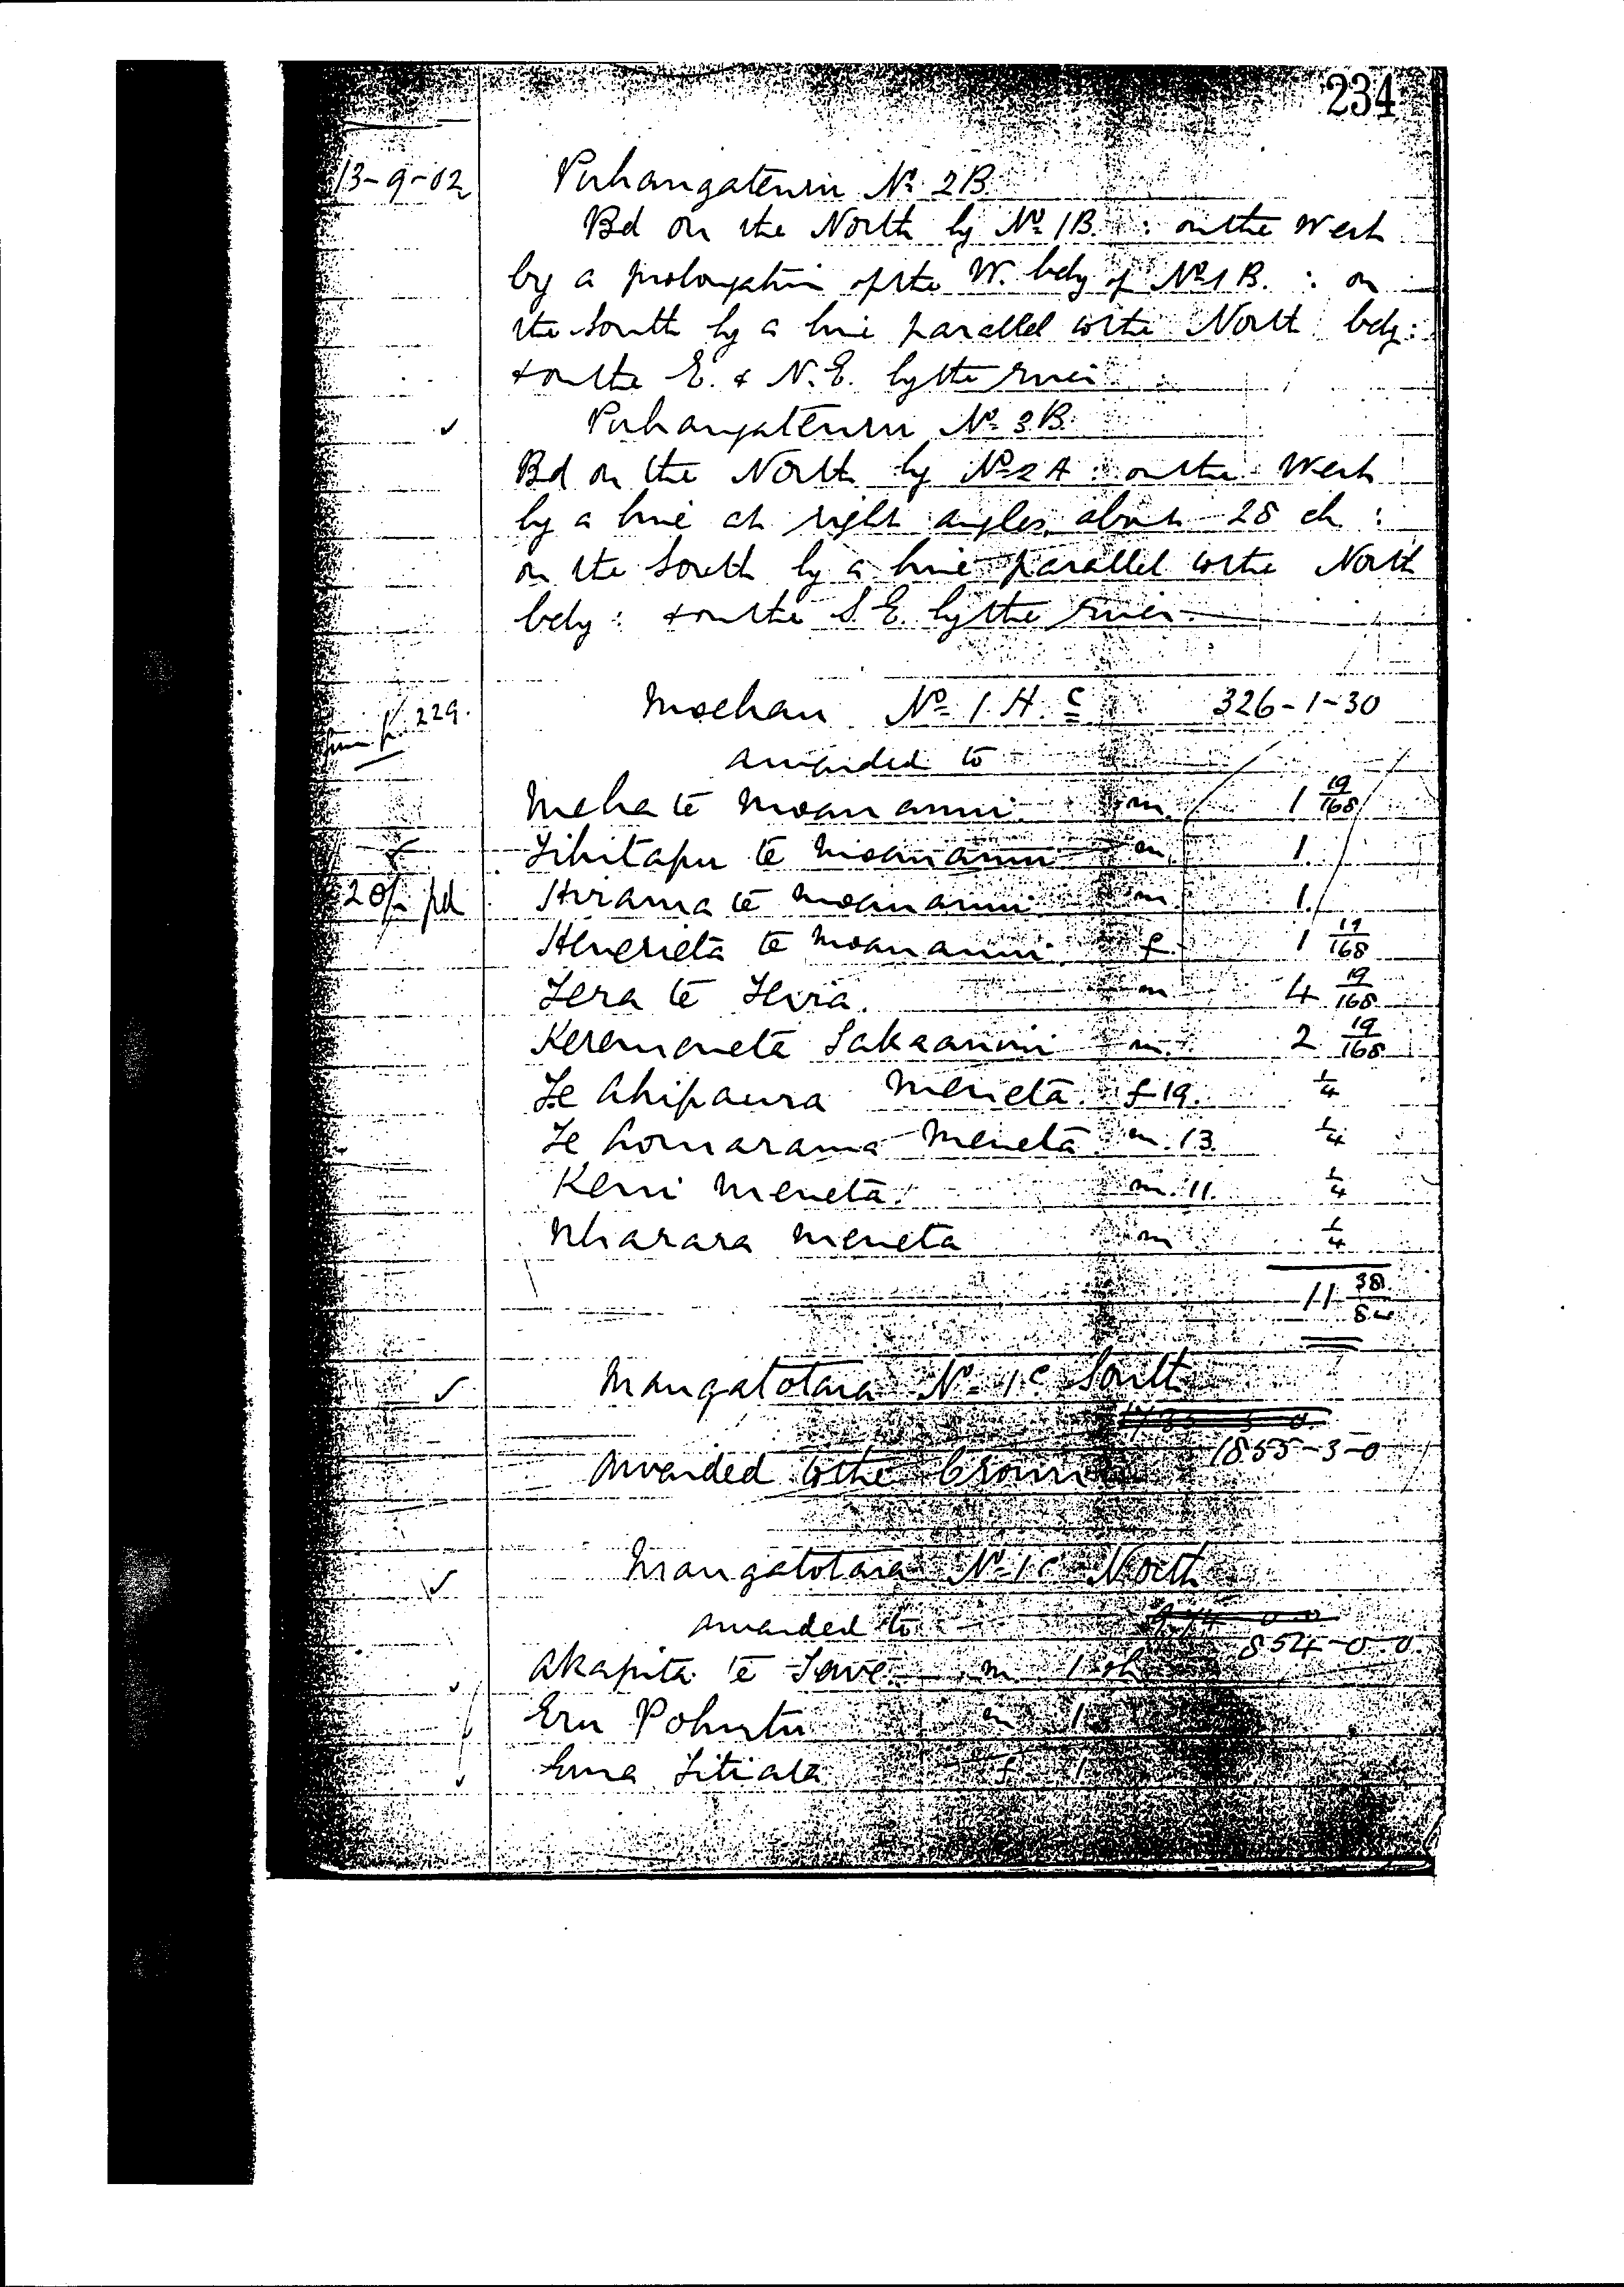 234
13-9-02 Puhangateuru No 2B.
Bd on the North by No 1B. : on the West
by a prolongation of the W. bdy of No 1B. : on
the South by a line parallel to the North bdy:
+ on the E. & N.E. by the river
✓ Puhangateuru No 3B.
Bd on the North by No 2A : on the West
by a line at right angles about 28 ch :
on the South by a line parallel to the North
bdy : + on the S.E. by the river.
from p. 229. Moehau No 1.H.c 326-1-30
awarded to
Meha te Moananui m. 1 19/168
Tihitapu te Moananui m. 1.
20/- pd Hirama te Moananui m. 1.
Henerieta te Moananui f. 1 19/168
Tera te Teira. m 4 19/168
Keremeneta Takaanini m. 2 19/168
Te Ahipaura Meneta. f 19. 1/4
Te Meneta m. 13. 1/4
Keni Meneta. m. 11. 1/4
Wharara Meneta m 1/4
11 38/84
✓ Mangatotara No 1c South
1855-3-0
Awarded to the Crown
✓ Mangatotara No 1c North
awarded to
854-0-0.
✓ Akapita te Tewe m 1 sh
Eru Pohutu m 1.
✓ Ema Titiata f 1